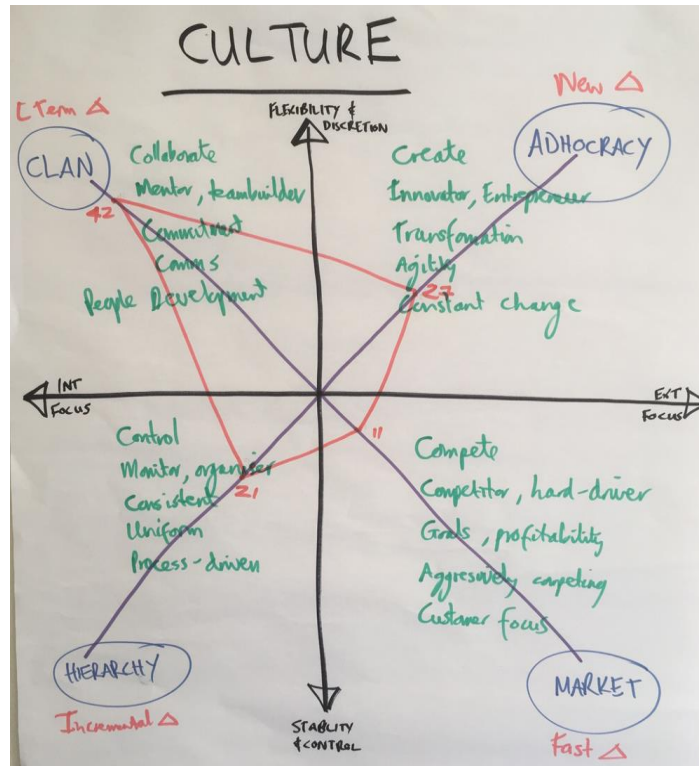 CULTURE
LTerm △
New △
FLEXIBILITY &
DISCRETION
CLAN
ADHOCRACY
Collaborate
Mentor, teambuilder
Commitment
Comms
People Development
42
Create
Innovator, Entrepreneur
Transformation
Agility
27
Constant change
INT
FOCUS
EXT
FOCUS
Control
Monitor, organiser
21
Consistent
Uniform
Process-driven
11
Compete
Competitor, hard-driver
Goals, profitability
Aggressively competing
Customer focus
HIERARCHY
Incremental △
MARKET
Fast △
STABLITY
& CONTROL